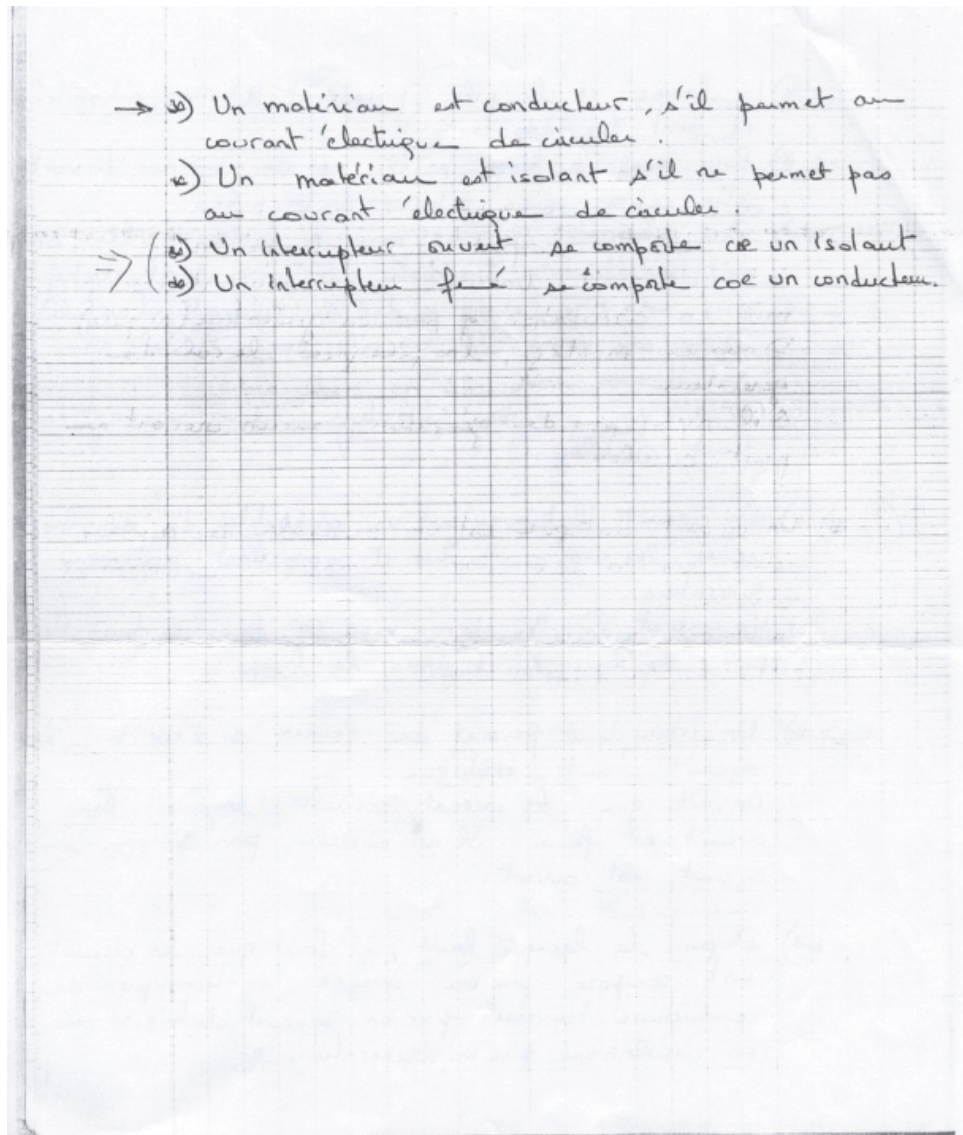 → *) Un matériau est conducteur, s'il permet au
courant électrique de circuler.
*) Un matériau est isolant s'il ne permet pas
au courant électrique de circuler.
⇒ ( *) Un interrupteur ouvert se comporte coe un isolant
*) Un interrupteur fermé se comporte coe un conducteur.